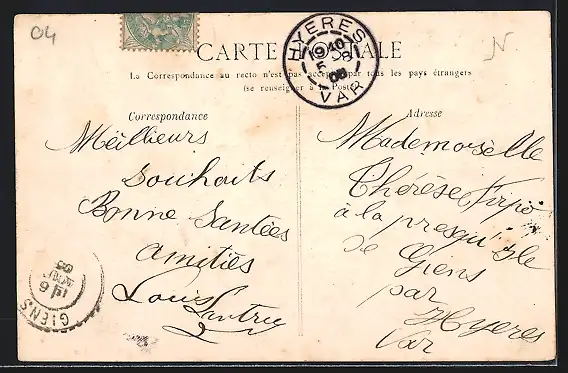 04
N
CARTE POSTALE
La Correspondance au recto n'est pas acceptée par tous les pays étrangers
(se renseigner à la Poste)
HYERES
VAR
Correspondance
Meillieurs
souhaits
Bonne Santées
amitiés
Louis
Adresse
Mademoiselle
Thérèse Firpo
à la presqu'isle
de Giens
par
Hyeres
Var
GIENS